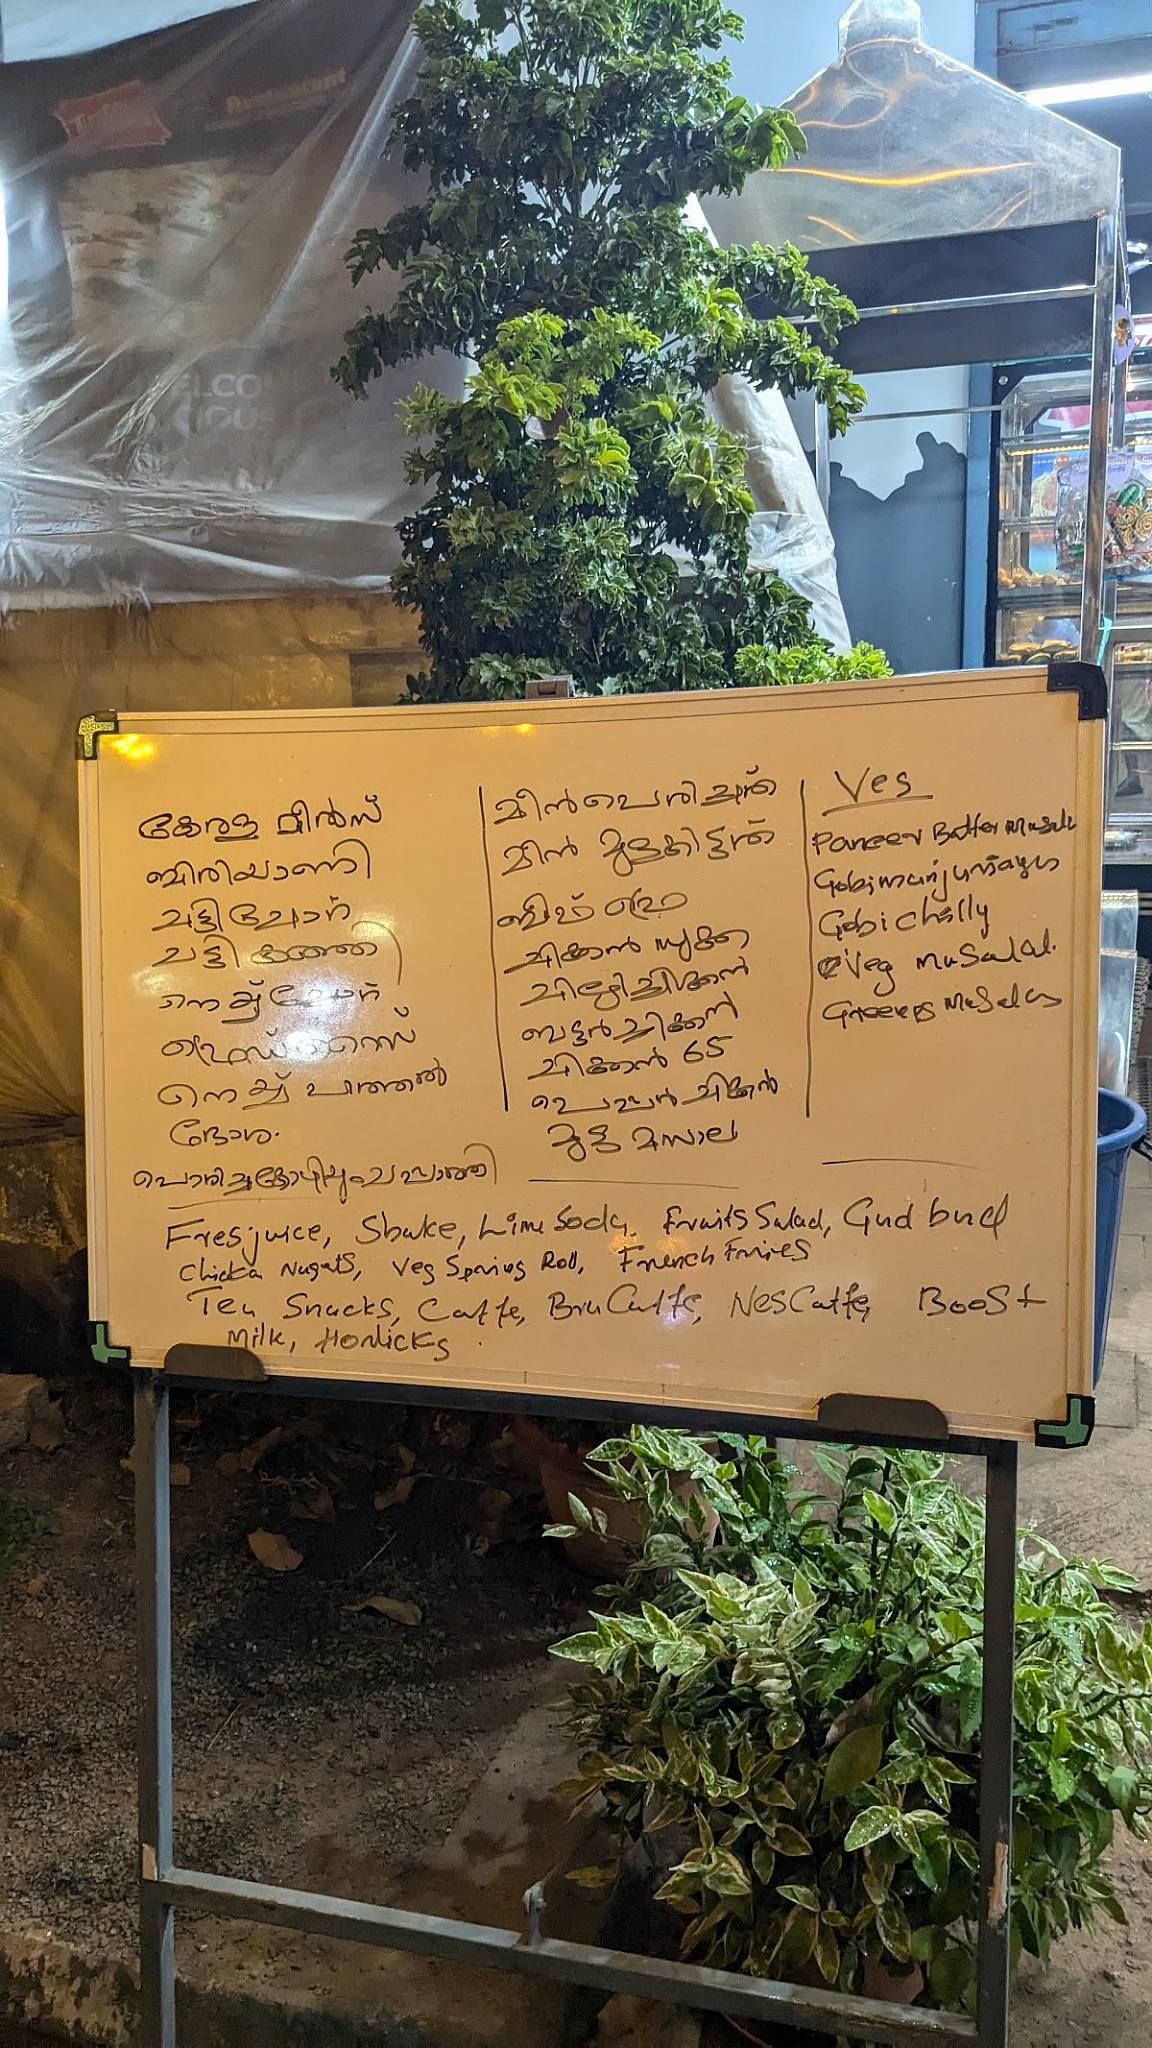 കേരള മീൽസ്
ബിരിയാണി
ചട്ടിചോറ്
ചട്ടി കഞ്ഞി
നെയ്ച്ചോറ്
നെയ്പ്പത്തൽ
ദോശ.
പൊരിച്ചകോഴിയും ചപ്പാത്തി
മീൻ പൊരിച്ചത്
മീൻ മുളകിട്ടത്
ബീഫ് ഫ്രൈ
ചിക്കൻ സുക്ക
ചില്ലിചിക്കൻ
ബട്ടർ ചിക്കൻ
ചിക്കൻ 65
പെപ്പർ ചിക്കൻ
മുട്ട മസാല
Veg
Paneer Butter Masala
Gobi
Gobi chilly
Veg Masala.
Masala
Fresjuice, Shake, Lime Soda, Fruits Salad, Gud bud
Chickan Nugats, Veg Spring Roll, French Fries
Tea Snacks, Caffe, Bru Caffe, NesCaffe, Boost
Milk, Horlicks